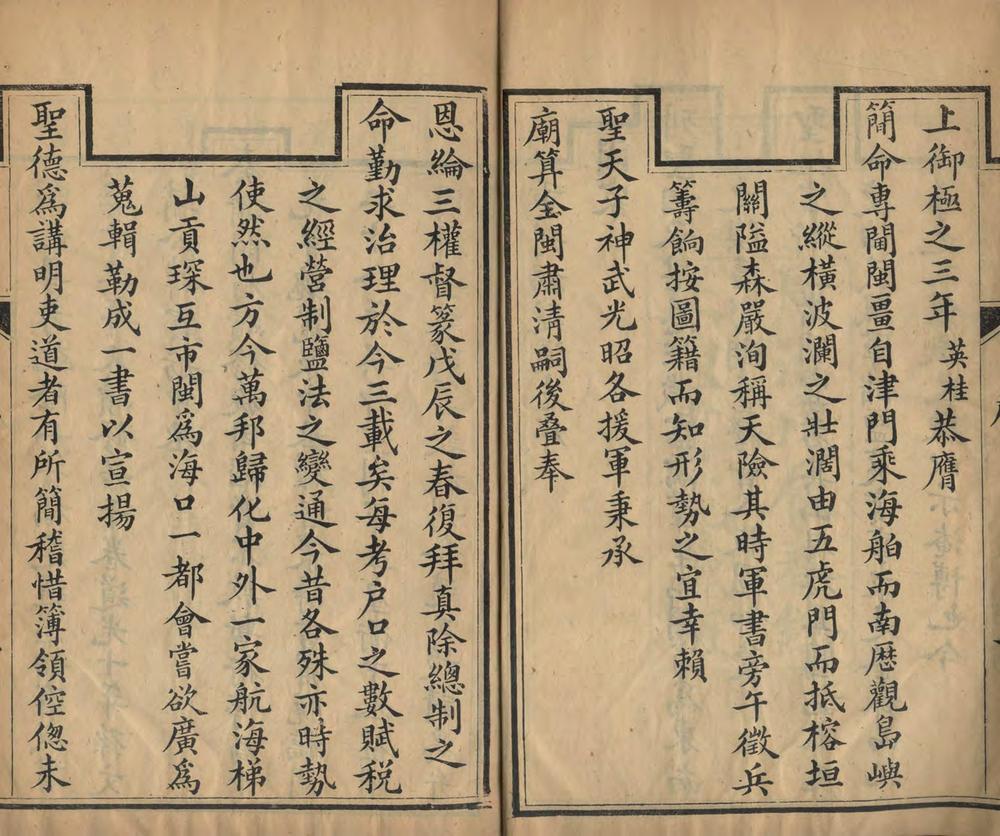 上御極之三年英桂恭膺
簡命專閫閩畺自津門乘海舶而南歷觀島嶼
之縱橫波瀾之壯濶由五虎門而抵榕垣
關隘森嚴洵稱天險其時軍書旁午徵兵
籌餉按圖籍而知形勢之宜幸賴
聖天子神武光昭各援軍秉承
廟算全閩肅清嗣後疊奉
恩綸三權督篆戊辰之春復拜真除總制之
命勤求治理於今三載矣每考户口之數賦税
之經營制鹽法之變通今昔各殊亦時勢
使然也方今萬邦歸化中外一家航海梯
山貢琛互市閩為海口一都會嘗欲廣為
蒐輯勒成一書以宣揚
聖德為講明吏道者有所簡稽惜簿領倥偬未